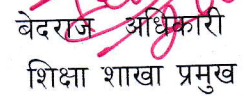 बेदराज अधिकारी
शिक्षा शाखा प्रमुख